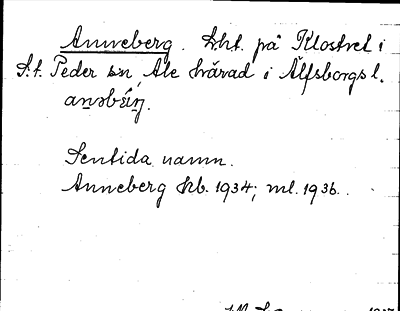 Anneberg. Lht. på Klostret i
S:t Peder sn, Ale härad i Älfsborgs l.
Sentida namn.
Anneberg kb. 1934; ml. 1936.